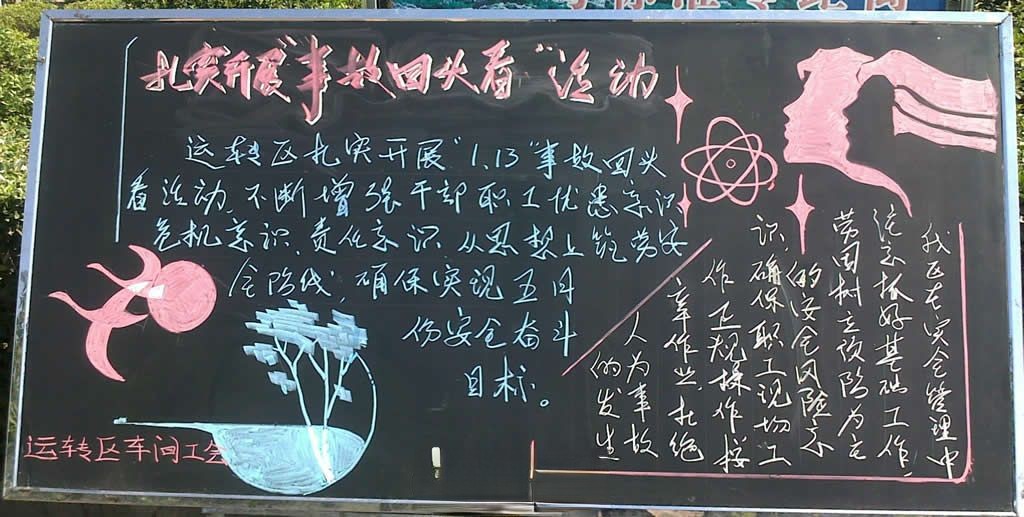 扎实开展"事故回头看"活动
运转区扎实开展"1.13"事故回头
看活动,不断增强干部职工忧患意识
危机意识,责任意识,从思想上筑牢安
全防线,确保实现五月
份安全奋斗
目标。
我区在安全管理中
注意抓好基础工作
牢固树立预防为主
的安全风险意
识,确保职工现场工
作卫规操作按
章作业杜绝
人为事故
的发生
运转区车间工会